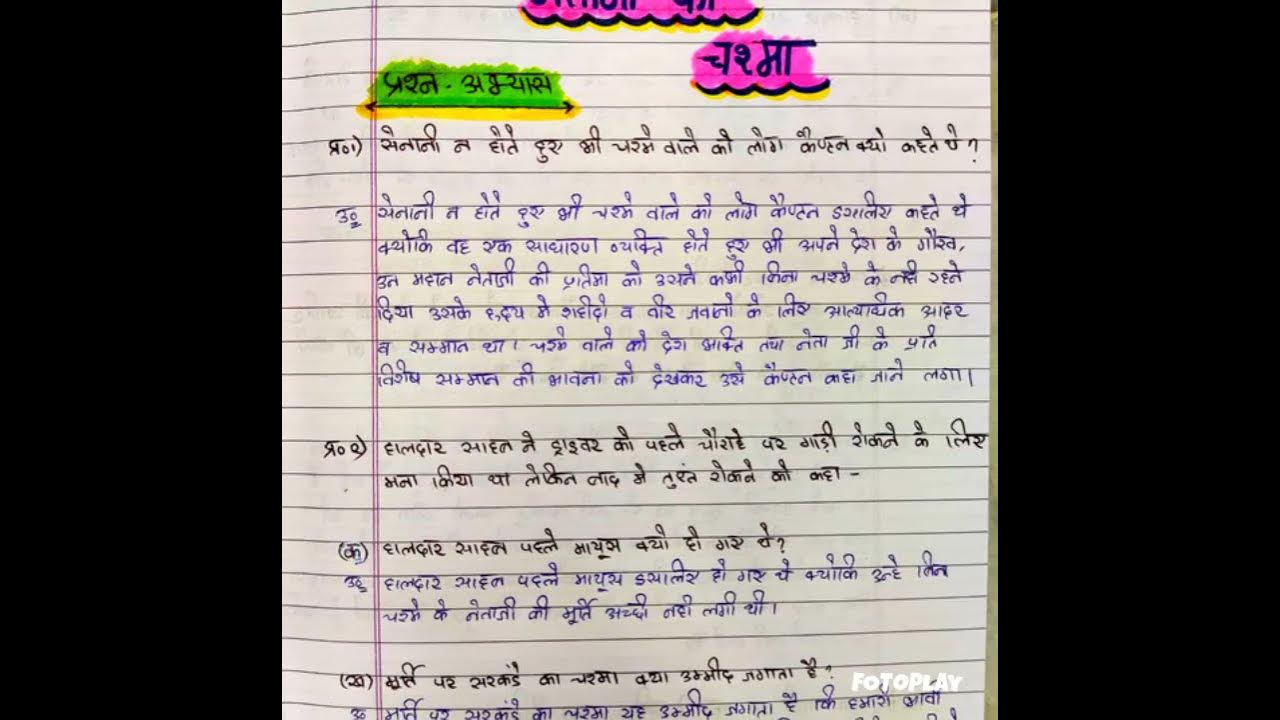 नेताजी का
चश्मा
प्रश्न - अभ्यास
प्र०१) सेनानी न होते हुए भी चश्मे वाले को लोग कैप्टन क्यो कहते थे?
उ० सेनानी न होते हुए भी चश्मे वाले को लोग कैप्टन इसालिए कहते थे
क्योकि वह एक साधारण व्यक्ति होते हुए भी अपने देश के गौरव,
उन महान नेताजी की प्रतिमा को उसने कभी बिना चश्मे के नही रहने
दिया उसके हृदय मे शहीदो व वीर जवानो के लिए आत्याधिक आदर
व सम्मान था। चश्मे वाले को देश भक्ति तथा नेता जी के प्रति
विशेष सम्मान की भावना को देखकर उसे कैप्टन कहा जाने लगा।
प्र०२) हालदार साहब ने ड्राइवर को पहले चौराहे पर गाड़ी रोकने के लिए
मना किया था लेकिन बाद मे तुरंत रोकने को कहा -
(क) हालदार साहब पहले मायूस क्यो हो गए थे?
उ० हालदार साहब पहले मायूस इसालिए हो गए थे क्योकि उन्हे बिन
चश्मे के नेताजी की मूर्ति अच्छी नही लगी थी।
(ख) मूर्ति पर सरकंडे का चश्मा क्या उम्मीद जगाता है?
उ० मूर्ति पर सरकंडे का चश्मा यह उम्मीद जगाता है कि हमारी भावी
FOTOPLAY